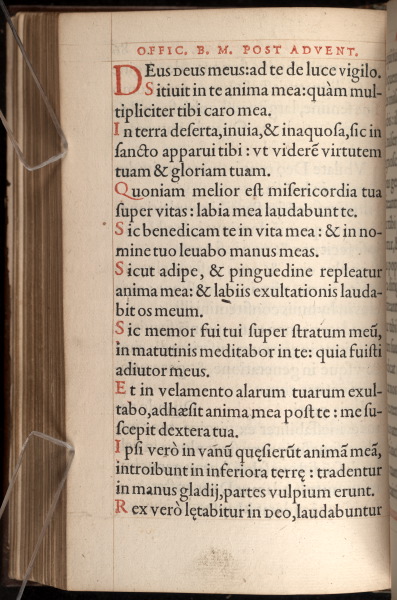 OFFIC. B. M. POST ADVENT.
DEus Deus meus:ad te de luce vigilo.
Sitiuit in te anima mea:quàm mul-
tipliciter tibi caro mea.
In terra deſerta,inuia,& inaquoſa,ſic in
ſancto apparui tibi : vt viderẽ virtutem
tuam & gloriam tuam.
Quoniam melior eſt miſericordia tua
ſuper vitas : labia mea laudabunt te.
Sic benedicam te in vita mea : & in no-
mine tuo leuabo manus meas.
Sicut adipe, & pinguedine repleatur
anima mea: & labiis exultationis lauda-
bit os meum.
Sic memor fui tui ſuper ſtratum meũ,
in matutinis meditabor in te: quia fuiſti
adiutor meus.
Et in velamento alarum tuarum exul-
tabo,adhæſit anima mea poſt te : me ſu-
ſcepit dextera tua.
Ipſi verò in vanũ quęſierũt animã meã,
introibunt in inferiora terrę : tradentur
in manus gladij,partes vulpium erunt.
Rex verò lętabitur in Deo,laudabuntur